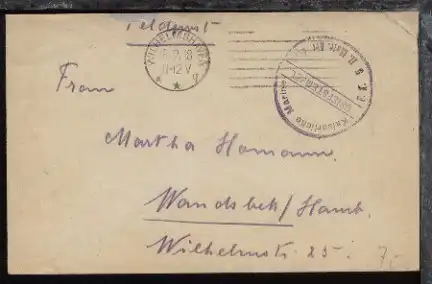 Feldpost
WILHELMSHAVEN
11-12V
Kaiserliche Marine
BRIEFSTEMPEL
Frau
Martha Homann.
Wandsbek/Hamb.
Wilhelmstr. 25.
7,-